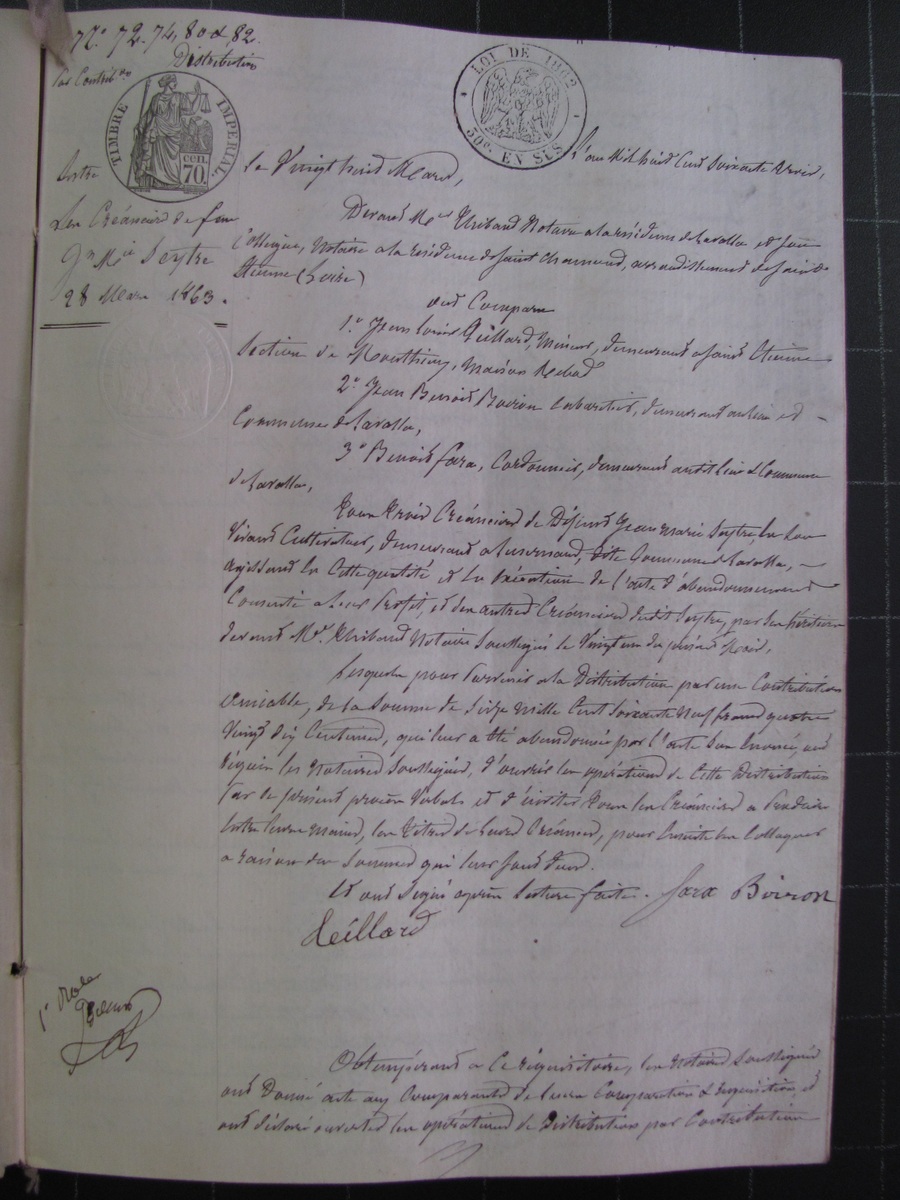 Nos 72, 74, 80 & 82.
Distribution
par Contribon
TIMBRE IMPERIAL
cen. 70.
LOI DE 1862
50c. EN SUS
Entre
Les Créanciers de feu
Jn Mie Seytre
28 Mars 1863.
L'an Mil huit Cent Soixante trois,
le Vingt huit Mars,
Devant Mes Thibaud Notaire a la résidence de Lavalla et son
Collègue, Notaire a la résidence de Saint Chamond, arrondissement de Saint
Etienne (Loire)
ont Comparu
1o Jean Louis Teillard, Mineur, demeurant a Saint Etienne
Section de Monthieu, Maison
2o Jean Benoit Boiron Cabaretier, demeurant au lieu et
Commune de Lavalla,
3o Benoit fara, Cordonnier, demeurant audit lieu & Commune
de Lavalla,
Tous trois Créanciers de Défunt Jean Marie Seytre En Son
Vivant Cultivateur, demeurant a Luzernaud, dite Commune de Lavalla,
agissant En Cette qualité et En Exécution de l'acte d'abandonnement
Consenti a leur Profit, et des autres Créanciers dudit Seytre, par Ses héritiers
devant Me Thibaud Notaire Soussigné le Vingt un du présent Mois,
Lesquels pour Parvenir a la Distribution par une Contribution
amiable, de la Somme de Seize Mille Cent Soixante Neuf francs quatre
Vingt dix Centimes, qui leur a été abandonnée par l'acte Sus Enoncé, ont
requis les Notaires Soussignés, d'ouvrir les opérations de Cette Distribution
Par Ce présent procès Verbal et d'inviter tous les Créanciers a Produire
Entre leurs Mains, les titres de leurs Créances, pour Ensuite les Colloquer
a raison des Sommes qui leur Sont dues.
Et ont Signé après lecture faite. fara Boiron
Teillard
1er Role
Obtempérant a Ce réquisitoire, les Notaires Soussignés
ont Donné acte aux Comparants de leurs Comparution & requisition, et
ont déclaré ouvertes les opérations de Distribution par Contribution